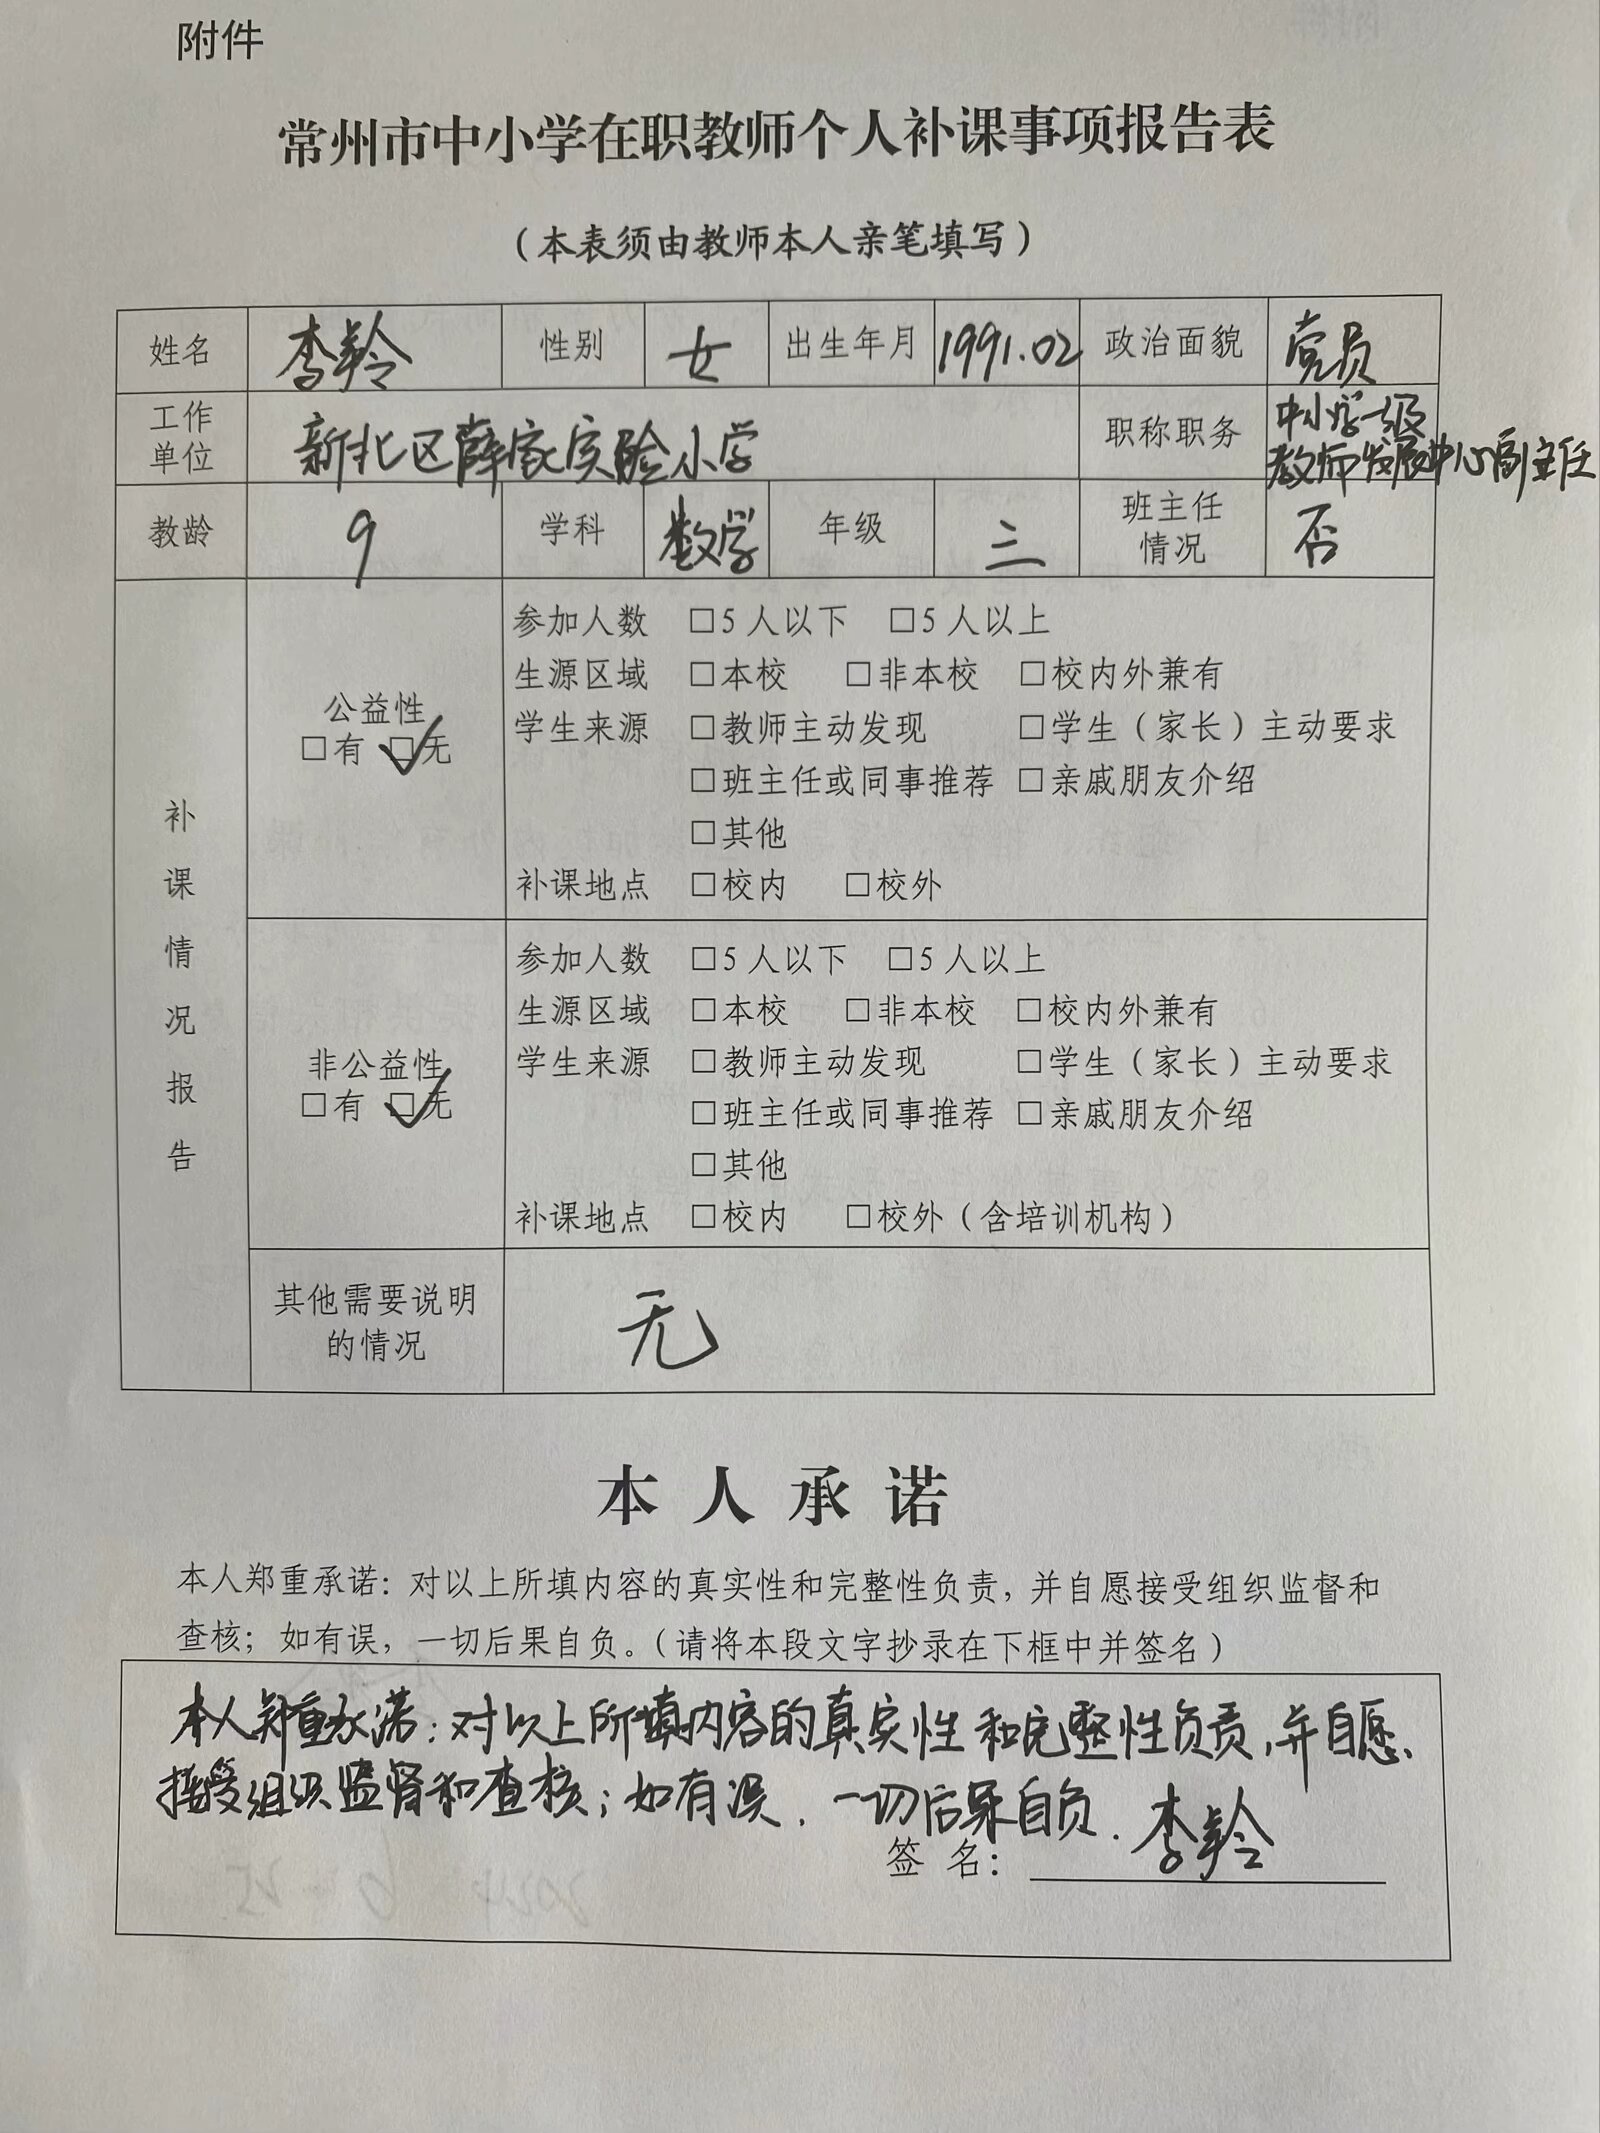 附件
常州市中小学在职教师个人补课事项报告表
（本表须由教师本人亲笔填写）
姓名 李羚 性别 女 出生年月 1991.02 政治面貌 党员
工作单位 新北区薛家实验小学 职称职务 中小学一级
教师发展中心副主任
教龄 9 学科 数学 年级 三 班主任情况 否
补课情况报告
公益性
□有 ☑无
参加人数 □5人以下 □5人以上
生源区域 □本校 □非本校 □校内外兼有
学生来源 □教师主动发现 □学生（家长）主动要求
□班主任或同事推荐 □亲戚朋友介绍
□其他
补课地点 □校内 □校外
非公益性
□有 ☑无
参加人数 □5人以下 □5人以上
生源区域 □本校 □非本校 □校内外兼有
学生来源 □教师主动发现 □学生（家长）主动要求
□班主任或同事推荐 □亲戚朋友介绍
□其他
补课地点 □校内 □校外（含培训机构）
其他需要说明
的情况
无
本人承诺
本人郑重承诺：对以上所填内容的真实性和完整性负责，并自愿接受组织监督和
查核；如有误，一切后果自负。（请将本段文字抄录在下框中并签名）
本人郑重承诺：对以上所填内容的真实性和完整性负责，并自愿
接受组织监督和查核；如有误，一切后果自负．
签名： 李羚